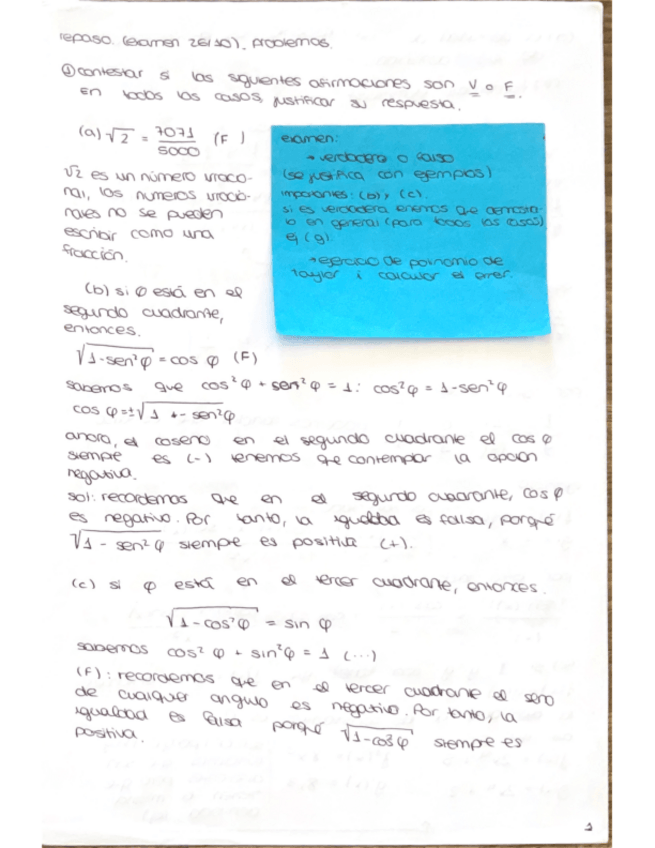 repaso. (examen 26/10). problemas.
① contestar si las siguientes afirmaciones son V o F.
En todos los casos, justificar su respuesta.
(a) √2 = 7071/5000 (F)
√2 es un número irracio-
nal, los numeros irracio-
nales no se pueden
escribir como una
fracción.
examen:
→ verdadero o falso
(se justifica con ejemplos)
importantes: (b) y (c).
si es verdadera tenemos que demostrar-
lo en general (para todos los casos)
ej (g).
→ ejercicio de polinomio de
Taylor i calcular el error.
(b) si φ está en el
segundo cuadrante,
entonces.
√1-sen²φ = cos φ (F)
sabemos que cos²φ + sen²φ = 1: cos²φ = 1-sen²φ
cos φ = ±√1 +- sen²φ
ahora, el coseno en el segundo cuadrante el cos φ
siempre es (-) tenemos que contemplar la opción
negativa.
sol: recordemos que en el segundo cuadrante, cos φ
es negativo. Por tanto, la igualdad es falsa, porqué
√1 - sen²φ siempre es positiva (+).
(c) si φ está en el tercer cuadrante, entonces.
√1-cos²φ = sin φ
sabemos cos²φ + sin²φ = 1 (...)
(F): recordemos que en el tercer cuadrante el seno
de cualquier angulo es negativo. Por tanto, la
igualdad es falsa porqué √1-cos²φ siempre es
positiva.
1